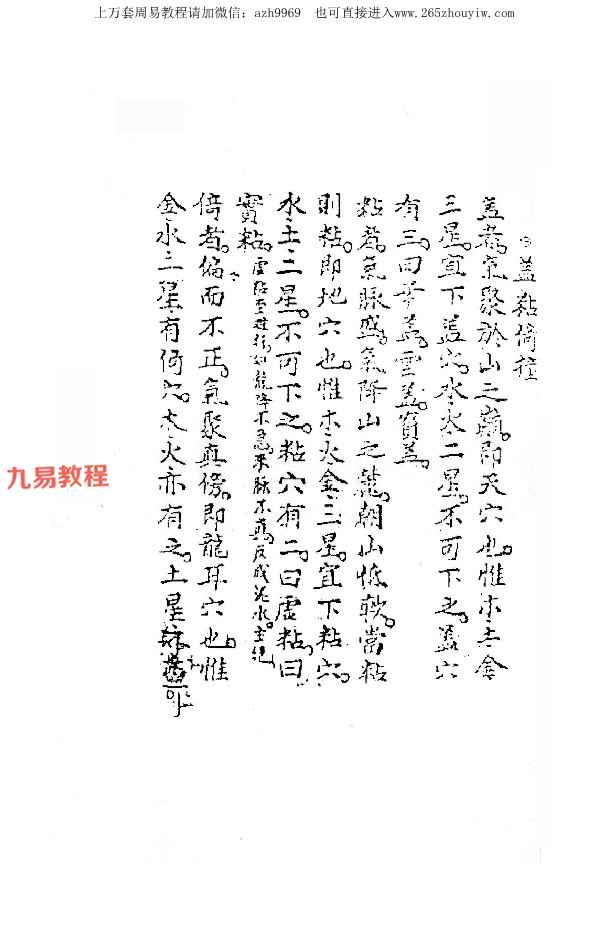 上万套周易教程请加微信：azh9969　也可直接进入www.265zhouyiw.com
盖粘倚撞
盖者。氣聚於山之巔。即天穴也。惟木土金
三星。宜下盖穴。水火二星。不可下之。盖穴
有三。曰華盖。雲盖。寳盖。
粘者。氣脉盛。氣降山之麓。朝山低軟。當粘
則粘。即地穴也。惟木火金三星。宜下粘穴。
水土二星。不可下之。粘穴有二。曰虛粘。曰
實粘。虛粘 如龍降不急。來脉不真。反成泥水。主絕
倚者。偏而不正。氣聚真傍。即龍耳穴也。惟
金水二星有倚穴。木火亦有之。土星
九易教程